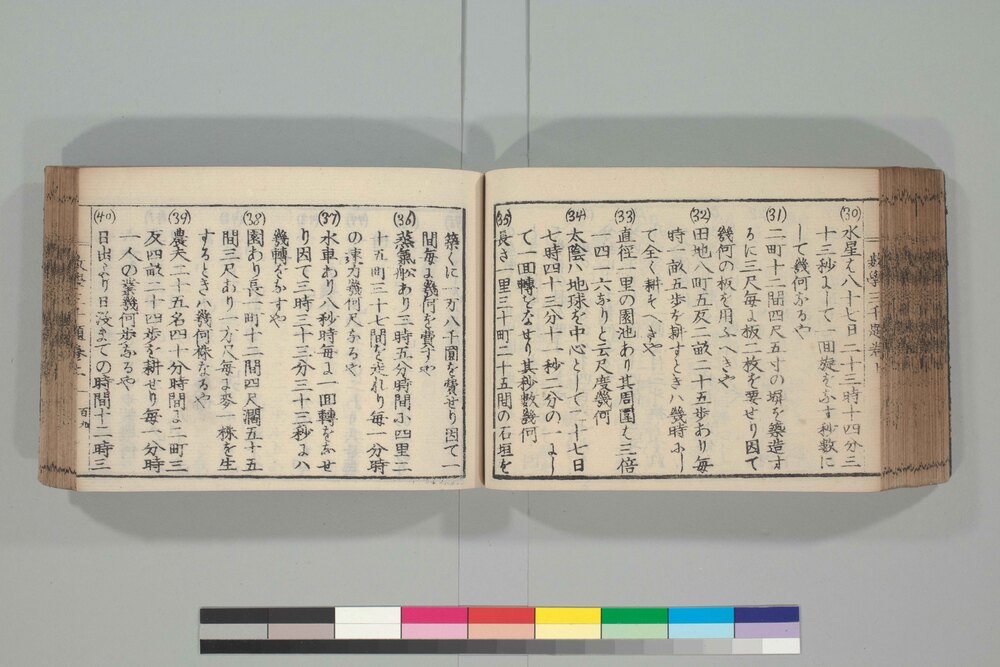 (30)水星ハ八十七日二十三時十四分三
十三秒ニして一回旋をふす秒數に
して幾何なるや
(31)二町十二間四尺五寸の塀を築造す
るに三尺毎よ板二枚を要せり因て
幾何の板を用ふへきや
(32)田地八町五反二畝二十五歩あり毎
時一畝五歩を耕すときハ幾時ふし
て全く耕そへきや
(33)直徑一里の園池あり其周圍ハ三倍
一四一六なりと云尺度幾何
(34)太陰ハ地球を中心として二十七日
七時四十三分十一秒二分の一よし
て一回轉をなせり其秒數幾何
(35)長さ一里三十町二十五間の石垣を
築くに一万八千圓を費せり因て一
間毎よ幾何を費すや
(36)蒸氣舩あり三時五分時間ふ四里二
十五町三十七間を走れり毎一分時
の速力幾何尺なるや
(37)水車あり八秒時毎よ一回轉をふせ
り因て三時三十三分三十三秒よハ
幾轉をふすや
(38)園あり長一町十二間四尺濶五十五
間三尺あり一方尺毎よ麥一株を生
するときハ幾何株なるや
(39)農夫二十五名四十分時間よ二町三
反四畝二十四歩を耕せり毎一分時
一人の業幾何歩なるや
(40)日出より日没まての時間十二時三